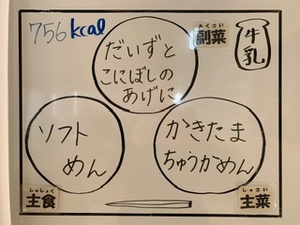 756 kcal
だいずと
こにぼしの
あげに
ふくさい
副菜
牛乳
ソフト
めん
しゅしょく
主食
かきたま
ちゅうかめん
しゅさい
主菜